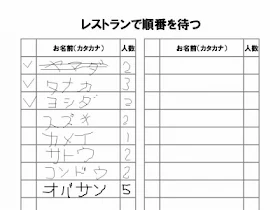 レストランで順番を待つ
お名前(カタカナ) 人数 お名前(カタカナ) 人数
✓ ヤマダ 2
✓ タナカ 3
✓ ヨシダ 2
スズキ 2
カメイ 1
サトウ 2
コンドウ 2
オバサン 5